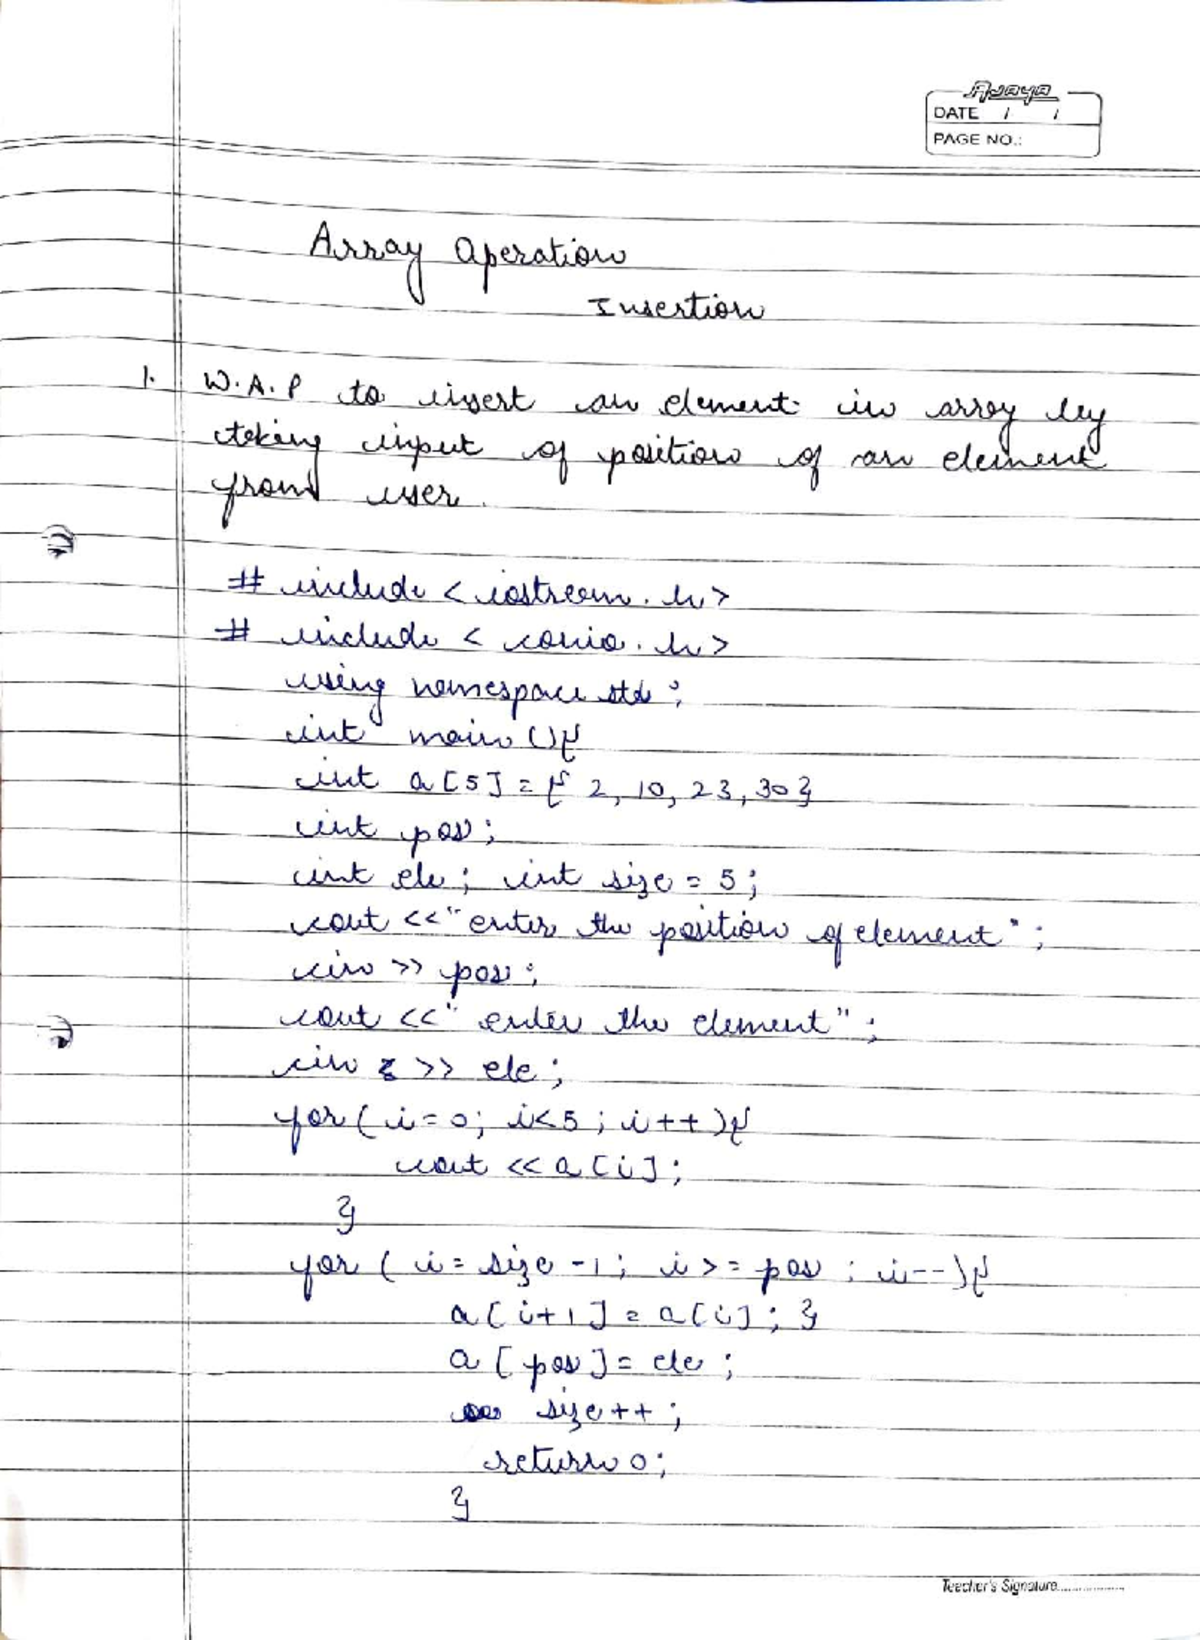 Ajaya
DATE / /
PAGE NO.:
Array Operation
Insertion
1. W.A.P to insert an element in array by
taking input of position of an element
from user.
# include < iostream.h>
# include < conio.h>
using namespace std;
int main (){
int a[5] = { 2, 10, 23, 30}
int pos;
int ele; int size = 5;
cout <<"enter the position of element";
cin >> pos;
cout <<" enter the element";
cin >> ele;
for( i=0; i<5; i++){
cout << a[i];
}
for ( i= size -1; i>= pos ; i--){
a[i+1] = a[i]; }
a[pos] = ele;
size++;
return 0;
}
Teacher's Signature..................